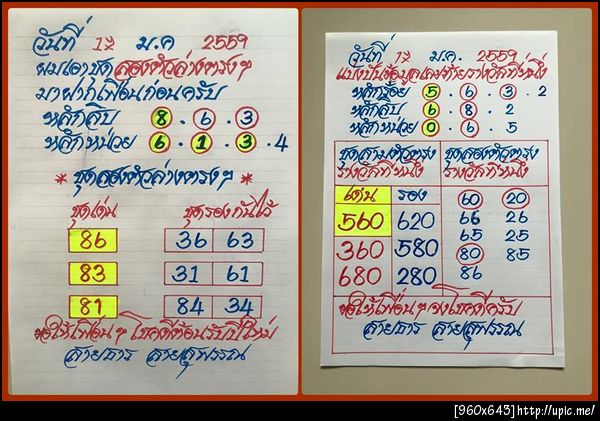 วันที่ 17 ม.ค 2559
ผมเอาชุดสองตัวล่างตรงๆ
มาฝากเพื่อนก่อนครับ
หลักสิบ 8 . 6 . 3
หลักหน่วย 6 . 1 . 3 . 4
* ชุดสองตัวล่างตรงๆ *
ชุดเด่น ชุดรองกันไว้
86 36 63
83 31 61
81 84 34
ขอให้เพื่อนๆ โชคดีต้อนรับปีใหม่
สายธาร สายสุพรรณ
วันที่ 17 ม.ค. 2559
แบ่งปันข้อมูลเลขท้ายรางวัลที่หนึ่ง
หลักร้อย 5 . 6 . 3 . 2
หลักสิบ 6 . 8 . 2
หลักหน่วย 0 . 6 . 5
ชุดสามตัวตรง ชุดสองตัวตรง
รางวัลที่หนึ่ง รางวัลที่หนึ่ง
เด่น รอง 60 20
560 620 66 26
65 25
360 580 80 85
680 280 86
ขอให้เพื่อนๆ จงโชคดีครับ
สายธาร สายสุพรรณ
[960x643]http://upic.me/